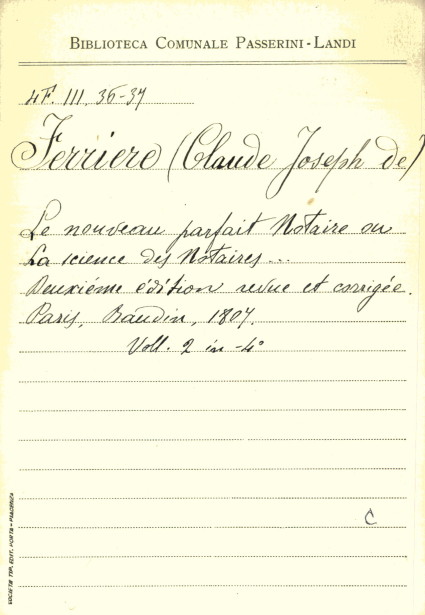 BIBLIOTECA COMUNALE PASSERINI-LANDI
4F. III. 36-37
Ferriere (Claude Joseph de)
Le nouveau parfait Notaire ou
La science des Notaires...
Deuxiéme édition revue et corrigée.
Paris, Baudin, 1807.
Voll. 2 in-4°
C
SOCIETÀ TIP. EDIT. PORTA - PIACENZA